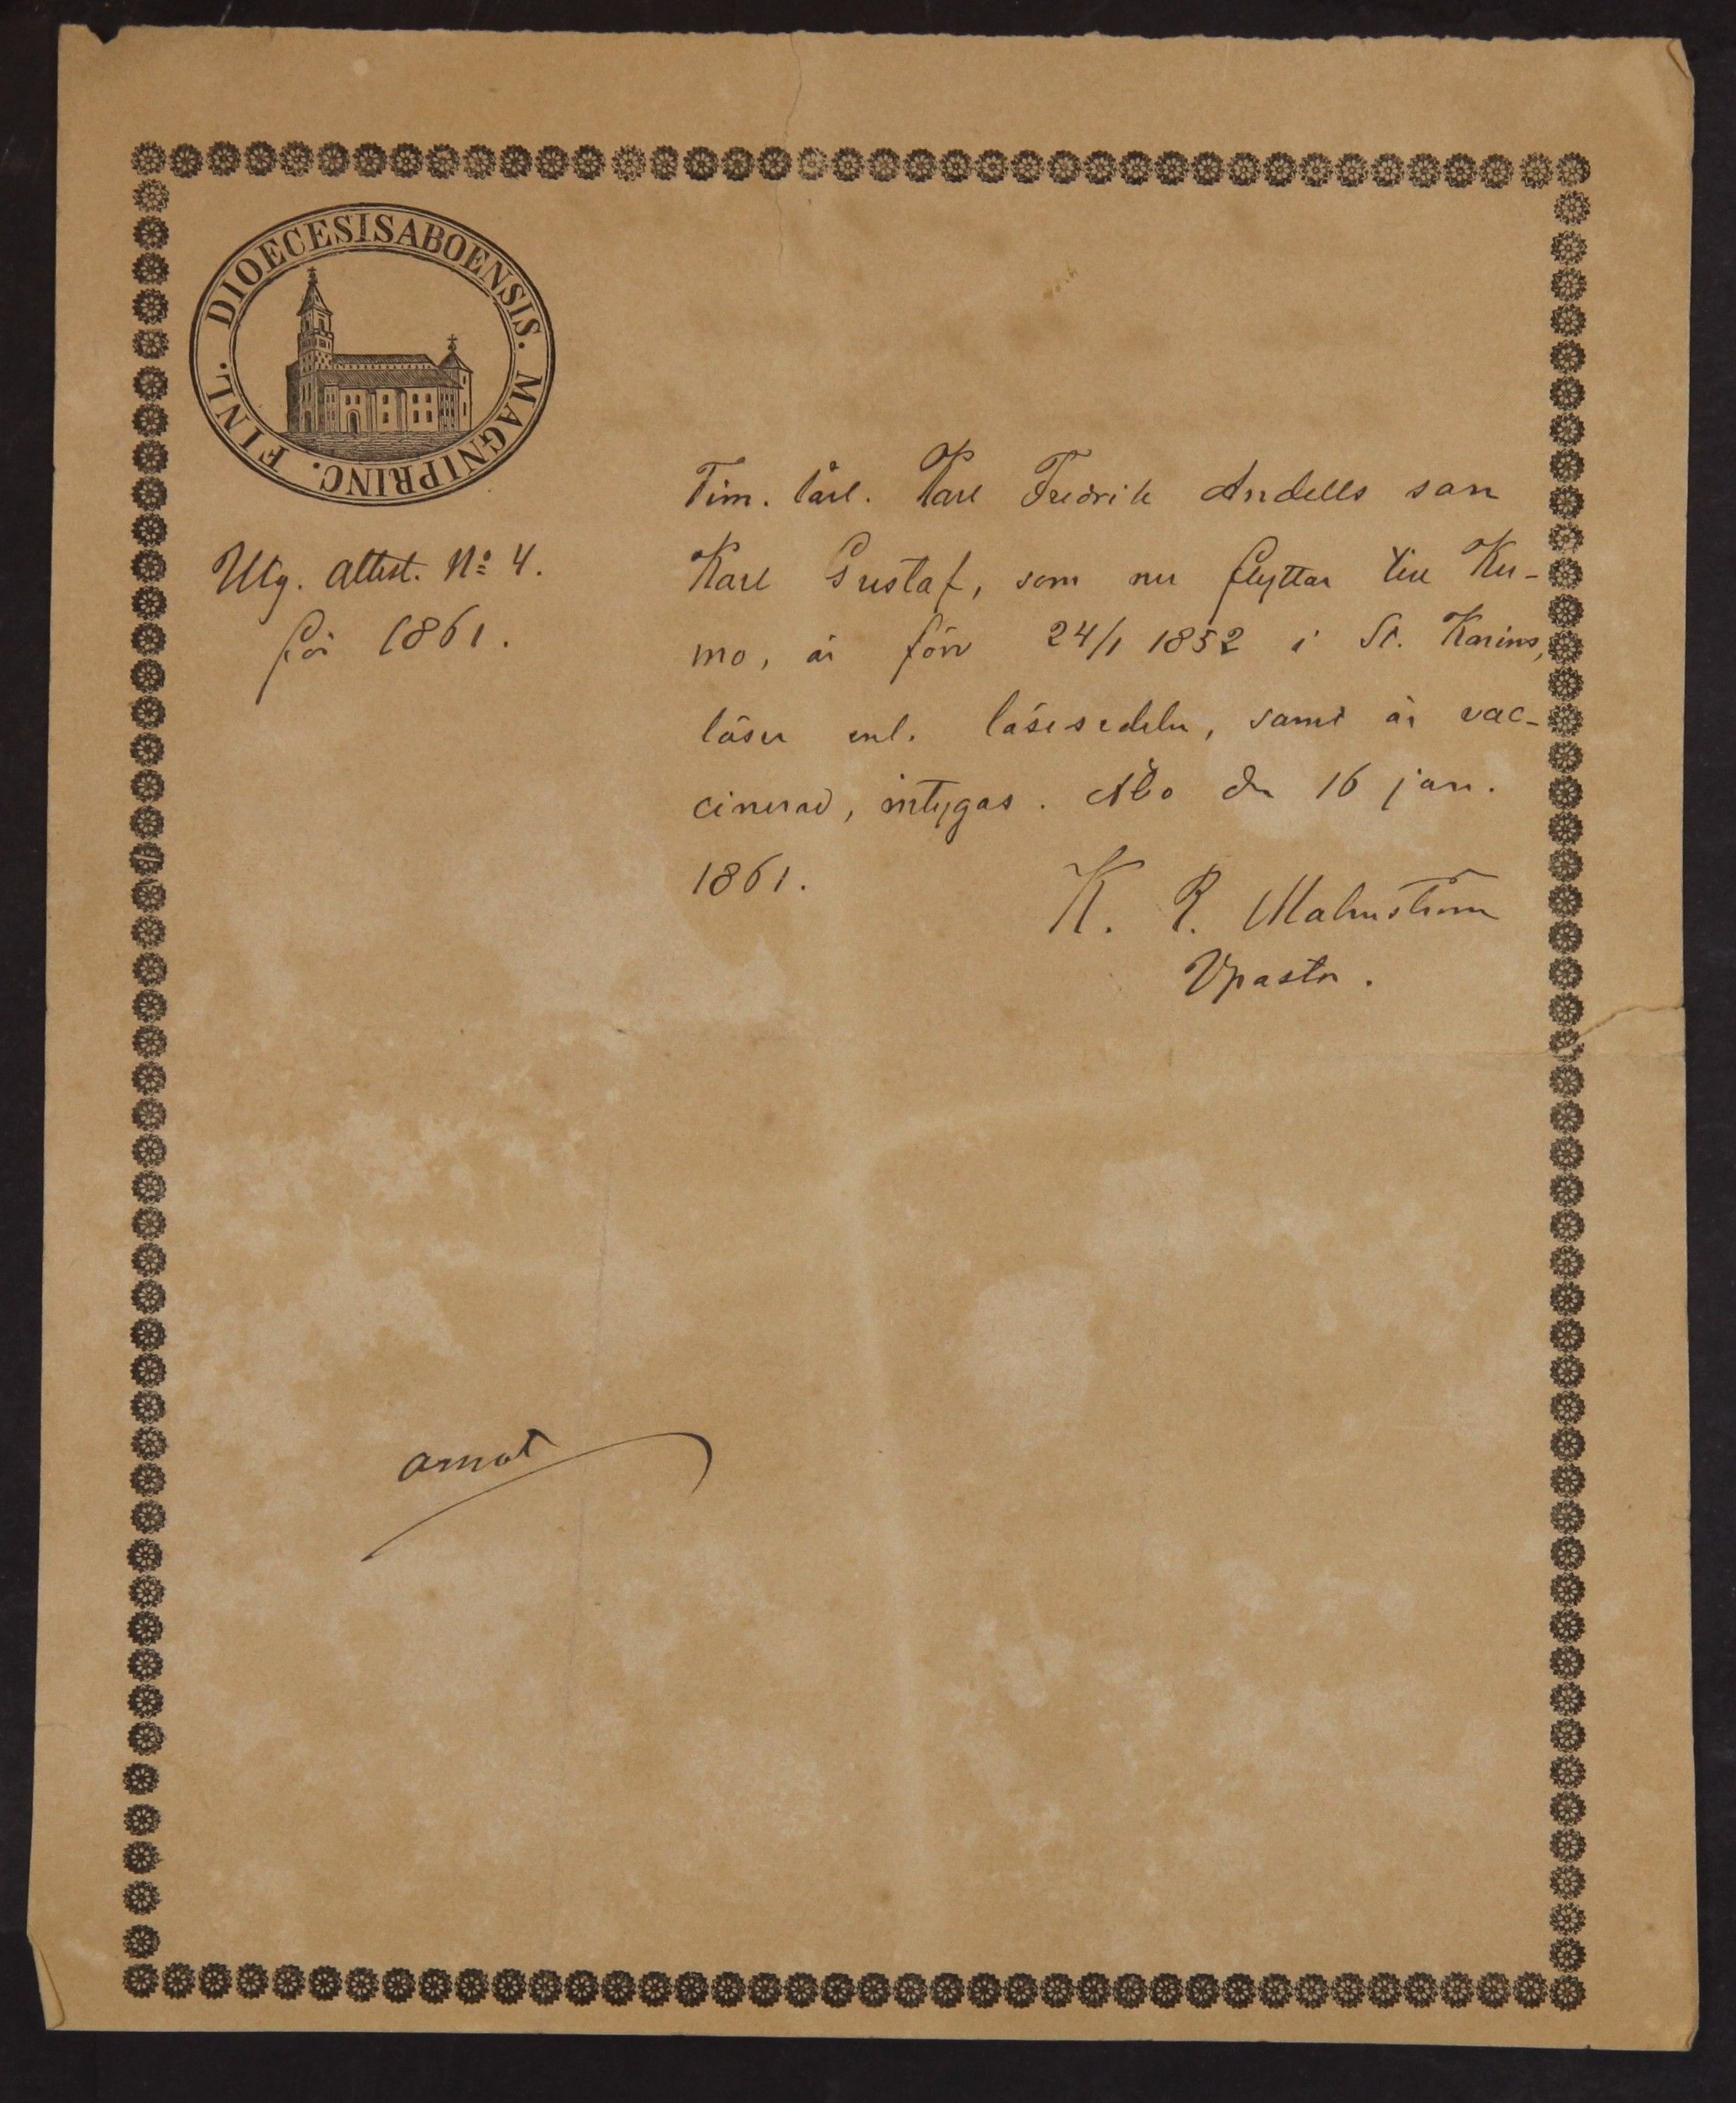 DIOECESIS ABOENSIS. MAGNI PRINC. FINL.
Utg. attest. No 4.
för 1861.
Tim. lärl. Karl Fredrik Andells son
Karl Gustaf, som nu flyttar till Ku-
mo, är född 24/1 1852 i St. Karins,
läser enl. läsesedeln, samt är vac-
cinerad, intygas. Åbo den 16 jan.
1861.
K. R. Malmström
Vpastor.